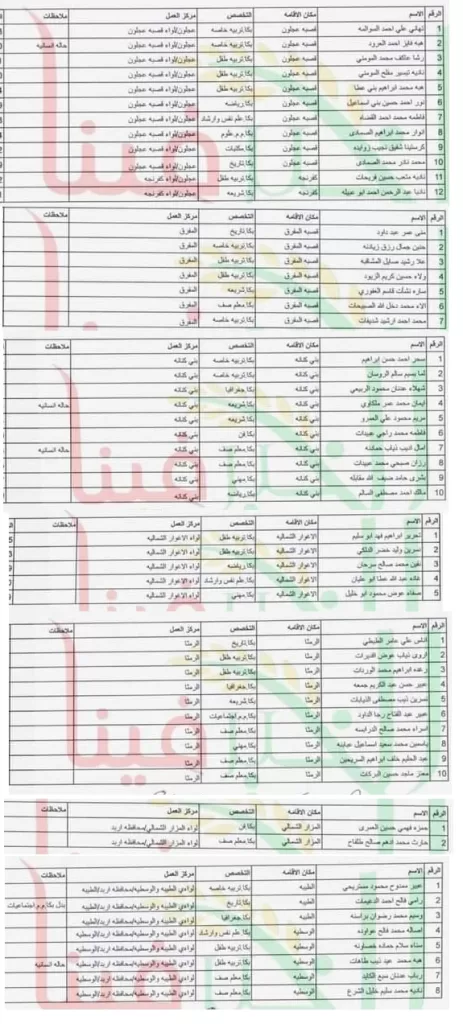 الرقم الاسم مكان الاقامه التخصص مركز العمل ملاحظات
1 تهاني علي احمد السوالمه قصبه عجلون بكا.تربيه خاصه عجلون/لواء قصبه عجلون
2 هبه فايز احمد العرود قصبه عجلون بكا.تربيه خاصه عجلون/لواء قصبه عجلون حاله انسانيه
3 رشا عاكف محمد المومني قصبه عجلون بكا.تربيه طفل عجلون/لواء قصبه عجلون
4 ناديه تيسير مفلح المومني قصبه عجلون بكا.تربيه طفل عجلون/لواء قصبه عجلون
5 هبه محمد ابراهيم بني عطا قصبه عجلون بكا.تربيه طفل عجلون/لواء قصبه عجلون
6 نور احمد حسين بني اسماعيل قصبه عجلون بكا.رياضه عجلون/لواء قصبه عجلون
7 فاطمه محمد احمد القضاه قصبه عجلون بكا.علم نفس وارشاد عجلون/لواء قصبه عجلون
8 انوار محمد ابراهيم الصمادي قصبه عجلون بكا.م.م.علوم عجلون/لواء قصبه عجلون
9 كرستينا شفيق نجيب زوايده قصبه عجلون بكا.مكتبات عجلون/لواء قصبه عجلون
10 محمد نادر محمد الصمادي قصبه عجلون بكا.تاريخ عجلون/لواء قصبه عجلون
11 ناديه متعب حسين فريحات كفرنجه بكا.تربيه طفل عجلون/لواء كفرنجه
12 ناديا عبد الرحمن احمد ابو عبيله كفرنجه بكا.شريعه عجلون/لواء كفرنجه
الرقم الاسم مكان الاقامه التخصص مركز العمل ملاحظات
1 منى عمر عيد داود قصبه المفرق بكا.تاريخ المفرق
2 حنين جمال رزق زيادنه قصبه المفرق بكا.تربيه خاصه المفرق
3 علا رشيد صايل المشاقبه قصبه المفرق بكا.تربيه طفل المفرق
4 ولاء حسين كريم الزيود قصبه المفرق بكا.تربيه طفل المفرق
5 ساره نشأت قاسم العفوري قصبه المفرق بكا.شريعه المفرق
6 الاء محمد دخل الله الصبيحات قصبه المفرق بكا.معلم صف المفرق
7 محمد احمد ارشيد شديفات قصبه المفرق بكا.تربيه خاصه المفرق
الرقم الاسم مكان الاقامه التخصص مركز العمل ملاحظات
1 سحر احمد حسن ابراهيم بني كنانه بكا.تربيه خاصه بني كنانه
2 لما بسيم سالم الروسان بني كنانه بكا.تربيه خاصه بني كنانه
3 شهلاء عدنان محمود الربيعي بني كنانه بكا.جغرافيا بني كنانه
4 ايمان محمد عمر ملكاوي بني كنانه بكا.شريعه بني كنانه حاله انسانيه
5 مريم محمود علي العمرو بني كنانه بكا.شريعه بني كنانه
6 فاطمه محمد راجي عبيدات بني كنانه بكا.فن بني كنانه
7 امال اديب ذياب حمادنه بني كنانه بكا.معلم صف بني كنانه حاله انسانيه
8 رزان صبحي محمد عبيدات بني كنانه بكا.معلم صف بني كنانه
9 بشرى حامد ضيف الله مقابله بني كنانه بكا.معلم صف بني كنانه
10 مالك احمد مصطفى السالم بني كنانه بكا.رياضه بني كنانه
الرقم الاسم مكان الاقامه التخصص مركز العمل ملاحظات
1 تحرير ابراهيم فهد ابو سليم الاغوار الشماليه بكا.تربيه طفل لواء الاغوار الشماليه
2 نسرين وليد خضر الدلكي الاغوار الشماليه بكا.تربيه طفل لواء الاغوار الشماليه
3 نفين محمد صالح سرحان الاغوار الشماليه بكا.رياضه لواء الاغوار الشماليه
4 غاده عبد الله عطا ابو عليان الاغوار الشماليه بكا.علم نفس وارشاد لواء الاغوار الشماليه
5 صفاء عوض محمود ابو خليل الاغوار الشماليه بكا.مهني لواء الاغوار الشماليه
الرقم الاسم مكان الاقامه التخصص مركز العمل ملاحظات
1 ايناس علي عامر الطيطي الرمثا بكا.تاريخ الرمثا
2 اروى ذياب عوض القديرات الرمثا بكا.تربيه طفل الرمثا
3 رغده ابراهيم محمد الوردات الرمثا بكا.تربيه طفل الرمثا
4 عبير حسن عبد الكريم جمعه الرمثا بكا.جغرافيا الرمثا
5 نسرين ذيب مصطفى الذيابات الرمثا بكا.شريعه الرمثا
6 عبير عبد الفتاح رجا الداود الرمثا بكا.م.م.اجتماعيات الرمثا
7 اسراء محمد صالح الدرابسه الرمثا بكا.معلم صف الرمثا
8 ياسمين محمد سعيد اسماعيل عبابنه الرمثا بكا.مهني الرمثا
9 عبد الحليم خلف ابراهيم السريحين الرمثا بكا.معلم صف الرمثا
10 معتز ماجد حسين البركات الرمثا بكا.معلم صف الرمثا
الرقم الاسم مكان الاقامه التخصص مركز العمل ملاحظات
1 حمزه فهمي حسين العمري المزار الشمالي بكا.فن لواء المزار الشمالي/محافظه اربد
2 حارث محمد ادهم صالح طلفاح المزار الشمالي بكا.معلم صف لواء المزار الشمالي/محافظه اربد
الرقم الاسم مكان الاقامه التخصص مركز العمل ملاحظات
1 عبير ممدوح محمود مستريحي الطيبه بكا.تربيه خاصه لوائي الطيبه والوسطيه/محافظه اربد/الطيبه
2 رامي فالح احمد الدعيمات الطيبه بكا.تاريخ لوائي الطيبه والوسطيه/محافظه اربد/الطيبه بدل بكا.م.م.اجتماعيات
3 وسيم محمد رضوان براسنه الطيبه بكا.جغرافيا لوائي الطيبه والوسطيه/محافظه اربد/الطيبه
4 اصاله محمد فالح عواوده الوسطيه بكا.علم نفس وارشاد لوائي الطيبه والوسطيه/محافظه اربد/الوسطيه
5 سناء سلام حماده خصاونه الوسطيه بكا.تربيه طفل لوائي الطيبه والوسطيه/محافظه اربد/الوسطيه
6 هبه محمد عيد ذيب طاهات الوسطيه بكا.تربيه طفل لوائي الطيبه والوسطيه/محافظه اربد/الوسطيه حاله انسانيه
7 رباب عدنان سبع الكايد الوسطيه بكا.معلم صف لوائي الطيبه والوسطيه/محافظه اربد/الوسطيه
8 ناديه محمد سليم خليل الشرع الوسطيه بكا.معلم صف لوائي الطيبه والوسطيه/محافظه اربد/الوسطيه